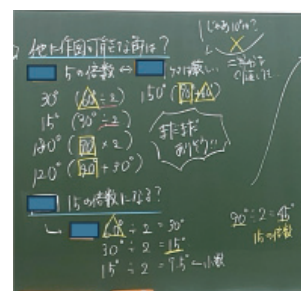 他に作図可能な角は?
じゃあ10°は?
5の倍数 ⇔
30° (60°÷2) 150° (90+60)
15° (30°÷2)
180° (90×2)
120° (90+30°)
まだまだ
ありそう!!
15の倍数になる?
60°÷2=30°
30°÷2=15°
15°÷2=7.5°←小数
90°÷2=45°
15の倍数